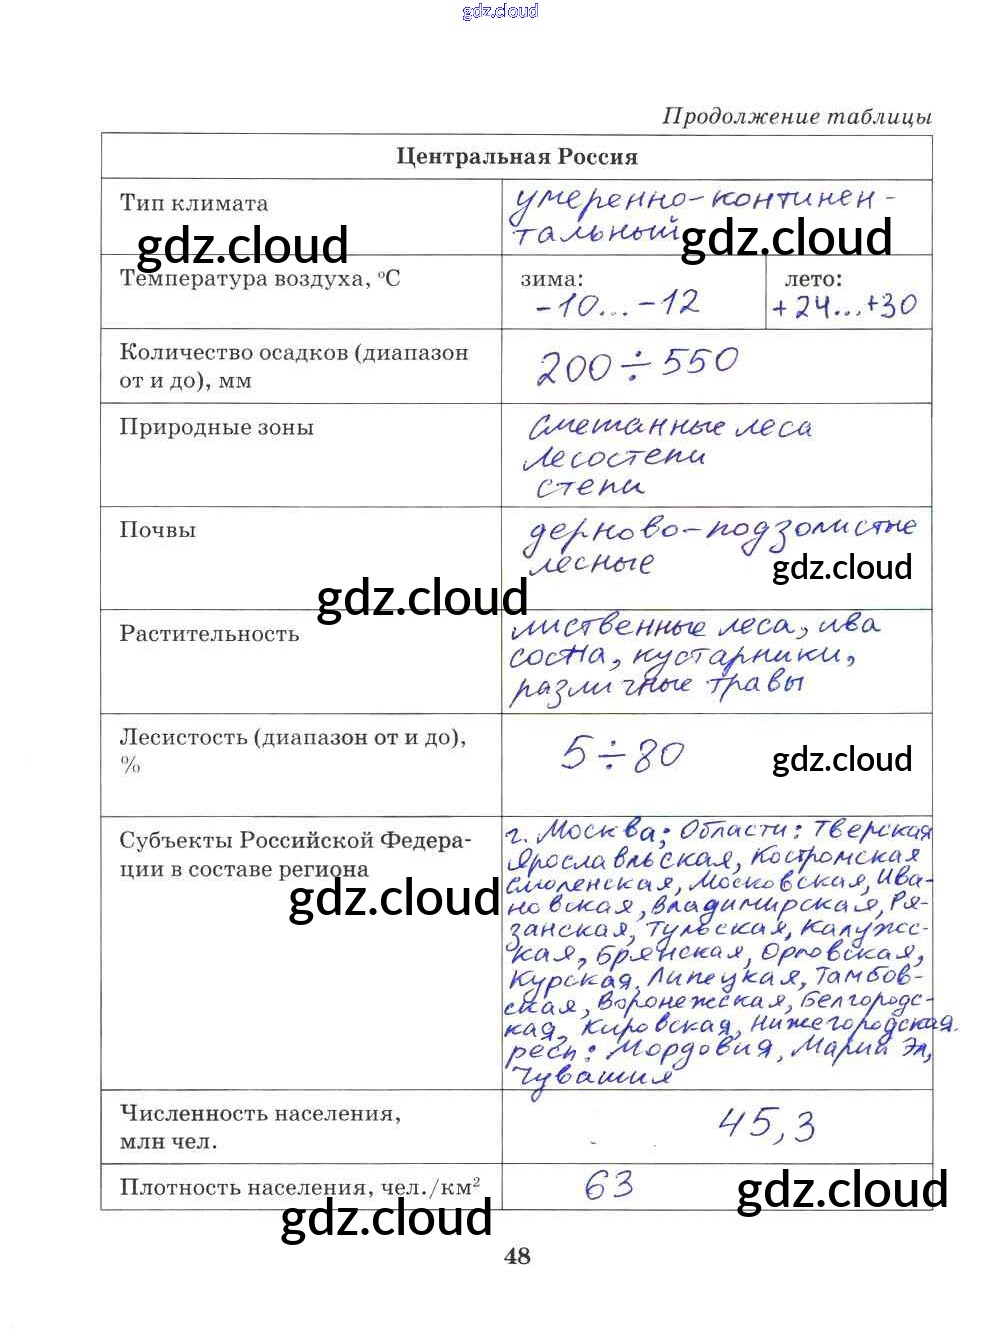 gdz.cloud
Продолжение таблицы
Центральная Россия
Тип климата
умеренно-континен-
тальный
gdz.cloud
gdz.cloud
Температура воздуха, °С
зима:
-10...-12
лето:
+24...+30
Количество осадков (диапазон
от и до), мм
200÷550
Природные зоны
смешанные леса
лесостепи
степи
Почвы
дерново-подзолистые
лесные
gdz.cloud
gdz.cloud
Растительность
лиственные леса, ива
сосна, кустарники,
различные травы
Лесистость (диапазон от и до),
%
5÷80
gdz.cloud
Субъекты Российской Федера-
ции в составе региона
gdz.cloud
г. Москва; Области: Тверская
Ярославльская, Костромская
Смоленская, Московская, Ива-
новская, Владимирская, Ря-
занская, Тульская, Калужс-
кая, Брянская, Орловская,
Курская, Липецкая, Тамбов-
ская, Воронежская, Белгородс-
кая, Кировская, Нижегородская.
респ: Мордовия, Марий Эл,
Чувашия
Численность населения,
млн чел.
45,3
Плотность населения, чел./км²
63
gdz.cloud
gdz.cloud
48